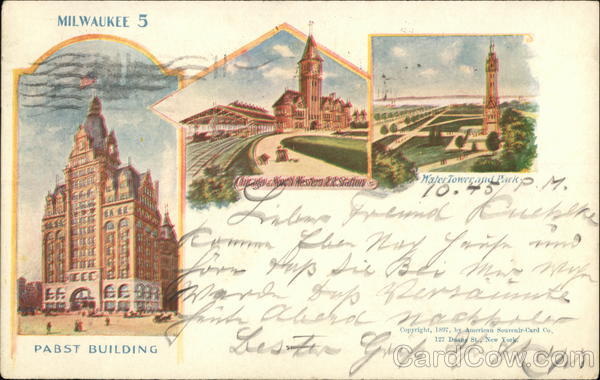 MILWAUKEE 5
Chicago & North Western R.R. Station
Water Tower and Park
10.45 P.M.
Lieber Freund
komme Eben Nach Hause und
höre daß Sie Bei Mir
wurde daß Versäumte
Abend Nachholen
Bester
Copyright, 1897, by American Souvenir-Card Co.
127 Duane St., New York.
PABST BUILDING
CardCow.com